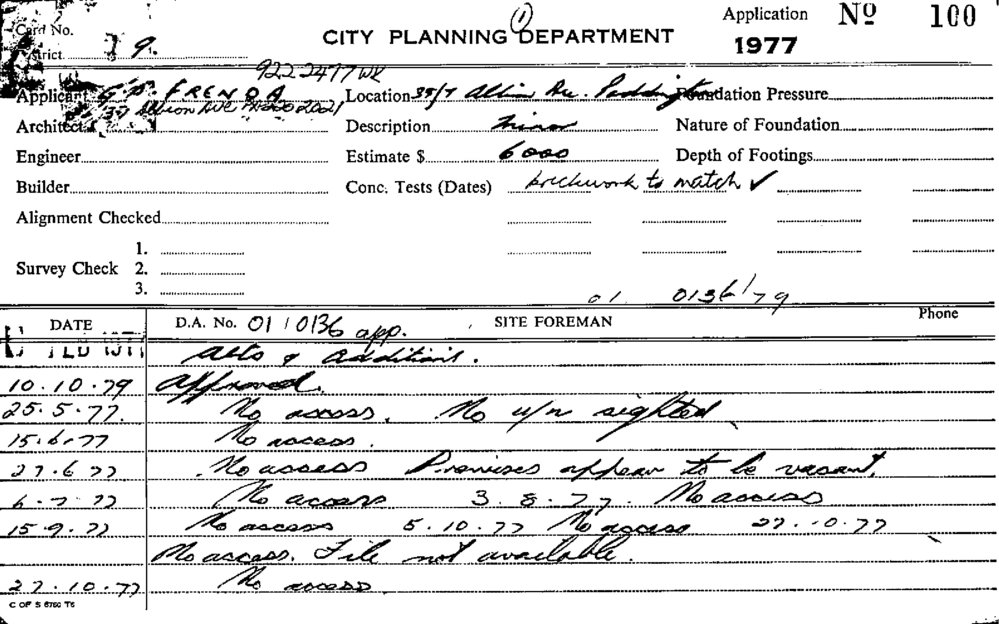 (1)
Application No 100
Card No.
CITY PLANNING DEPARTMENT
1977
District 9.
9222477 WK
Applicant G. D. FRENDA Location 35/7 Albion Ave. Paddington Foundation Pressure
Albion Ave 2021
Architect Description Minor Nature of Foundation
Engineer Estimate $ 6000 Depth of Footings
Builder Conc. Tests (Dates) brickwork to match ✓
Alignment Checked
1.
Survey Check 2.
3.
01. 0136/79
DATE D.A. No. 01/0136 app. SITE FOREMAN Phone
FEB 1977 Alts & Additions.
10.10.79 Approved.
25.5.77. No access. No u/n sighted
15.6.77 No access.
27.6.77 No access Premises appear to be vacant.
6.7.77 No access 3.8.77. No access
15.9.77 No access 5.10.77 No access 27.10.77
No access. File not available.
27.10.77 No access
C OF S 6760 T5